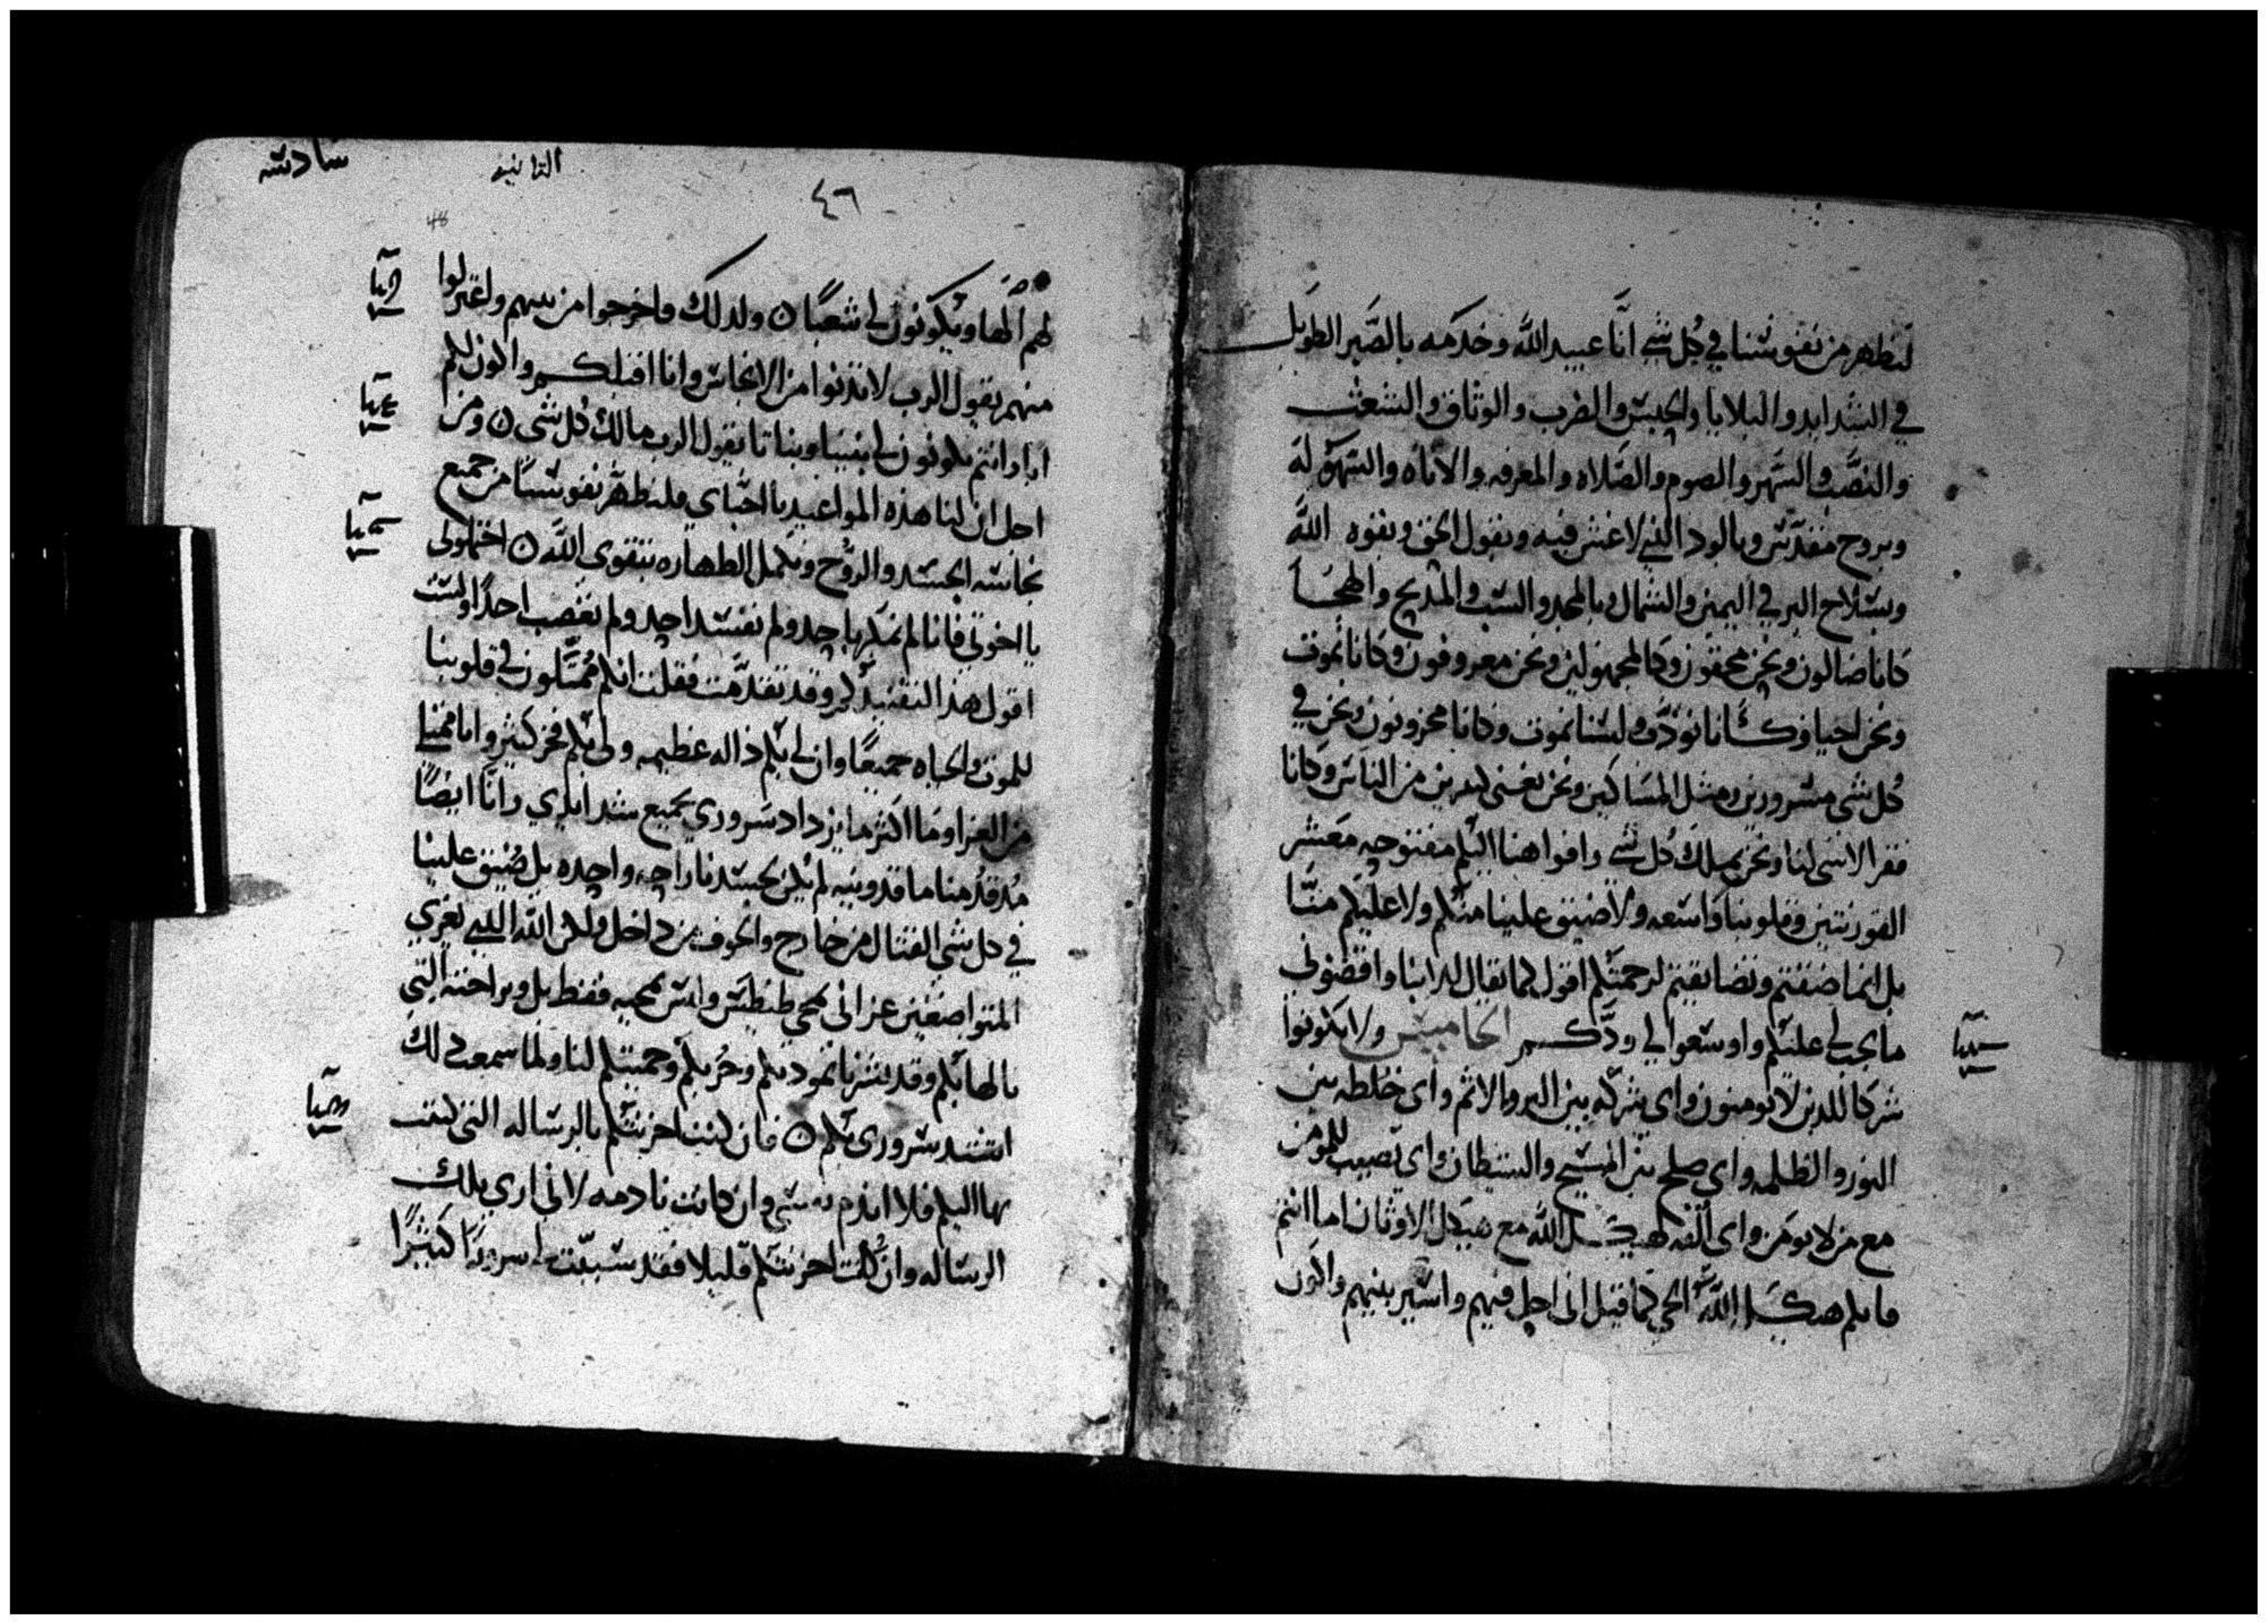 لنظهر من نفوسنا في كل شي انا عبيد الله وخدمه بالصبر الطويل
في الشدايد والبلايا والحبس والضرب والوثاق والشعث
والنصب والسهر والصوم والصلاه والمعرفه والاناه والسهوله
وبروح مقدس وبالود الذي لا غش فيه وبقول الحق وبقوه الله
وبسلاح البر في اليمين والشمال وبالمجد والسب والمديح والهجا
كانا ضالون ونحن محقون وكالمجهولين ونحن معروفون وكانا نموت
ونحن احيا وكانا نودب ولسنا نموت وكانا محزونون ونحن في
كل شي مسرورين ومثل المساكين ونحن نغني كثيرين من الناس وكانا
فقرا لا شي لنا ونحن نملك كل شي وافواهنا اليكم مفتوحه معشر
القورنتيين وقلوبنا واسعه ولا ضيق علينا منكم ولا عليكم منا
بل انما ضقتم وتضايقتم لرحمتكم اقول كما يقال للابنا واقضوني
ما يجب لي عليكم واوسعوا لي ودكم الخامس ولا تكونوا
شركا للذين لا يومنون واي شركه بين البر والاثم واي خلطه بين
النور والظلمه واي صلح بين المسيح والشيطان واي نصيب للمومن
مع من لا يومن واي الفه لهيكل الله مع هيكل الاوثان اما انتم
فانكم هيكل الله الحي كما قيل اني احل فيهم واسير بينهم واكون
سادسه
الثانيه
٤٦
لهم الها ويكونون لي شعبا ولذلك فاخرجوا من بينهم واعتزلوا
منهم يقول الرب لا تدنوا من الانجاس وانا اقبلكم واكون لكم
ابا وانتم تكونون لي بنينا وبناتا يقول الرب مالك كل شي ومن
اجل ان لنا هذه المواعيد يا احباي فلنطهر نفوسنا من جميع
نجاسه الجسد والروح ونكمل الطهاره بتقوى الله احتملوني
يا اخوتي فانا لم نكره احد ولم نفسد احد ولم نغصب احدا ولست
اقول هذا لتفنيدكم وقد تقدمت فقلت انكم ممثلون في قلوبنا
للموت والحياه جميعا وان لي بكم داله عظيمه ولي بكم فخر كثير وانا ممتلي
من العزا وما اكثر ما يزداد سروري بجميع شدايدي وانا ايضا
مذ قدمنا ماقدونيه لم يكن لجسدنا راحه واحده بل ضيق علينا
في كل شي القتال من خارج والخوف من داخل ولكن الله الذي يعزي
المتواضعين عزاني بمجي طيطس وليس بمجيه فقط بل وبراحته التي
نالها بكم وقد بشرنا بمودتكم وحزنكم وحميتكم لنا ولما سمعت ذلك
اشتد سروري بكم فان كنت احزنتكم بالرساله التي كتبت
بها اليكم فلا اندم نفسي وان كانت نادمه لاني اري تلك
الرساله وان كانت احزنتكم قليلا فقد سببت سرورا كثيرا